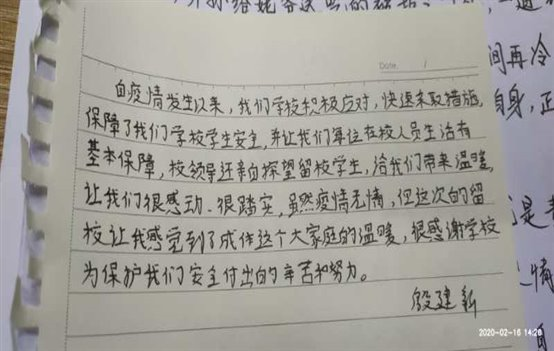 间再冷
自身，正
Date.    /
自疫情发生以来，我们学校积极应对，快速采取措施，
保障了我们学校学生安全，并让我们每位在校人员生活有
基本保障，校领导还亲自探望留校学生，给我们带来温暖，
让我们很感动、很踏实，虽然疫情无情，但这次的留
校让我感觉到了成体这个大家庭的温暖，很感谢学校
为保护我们安全付出的辛苦和努力。
殷建新
2020-02-16 14:26